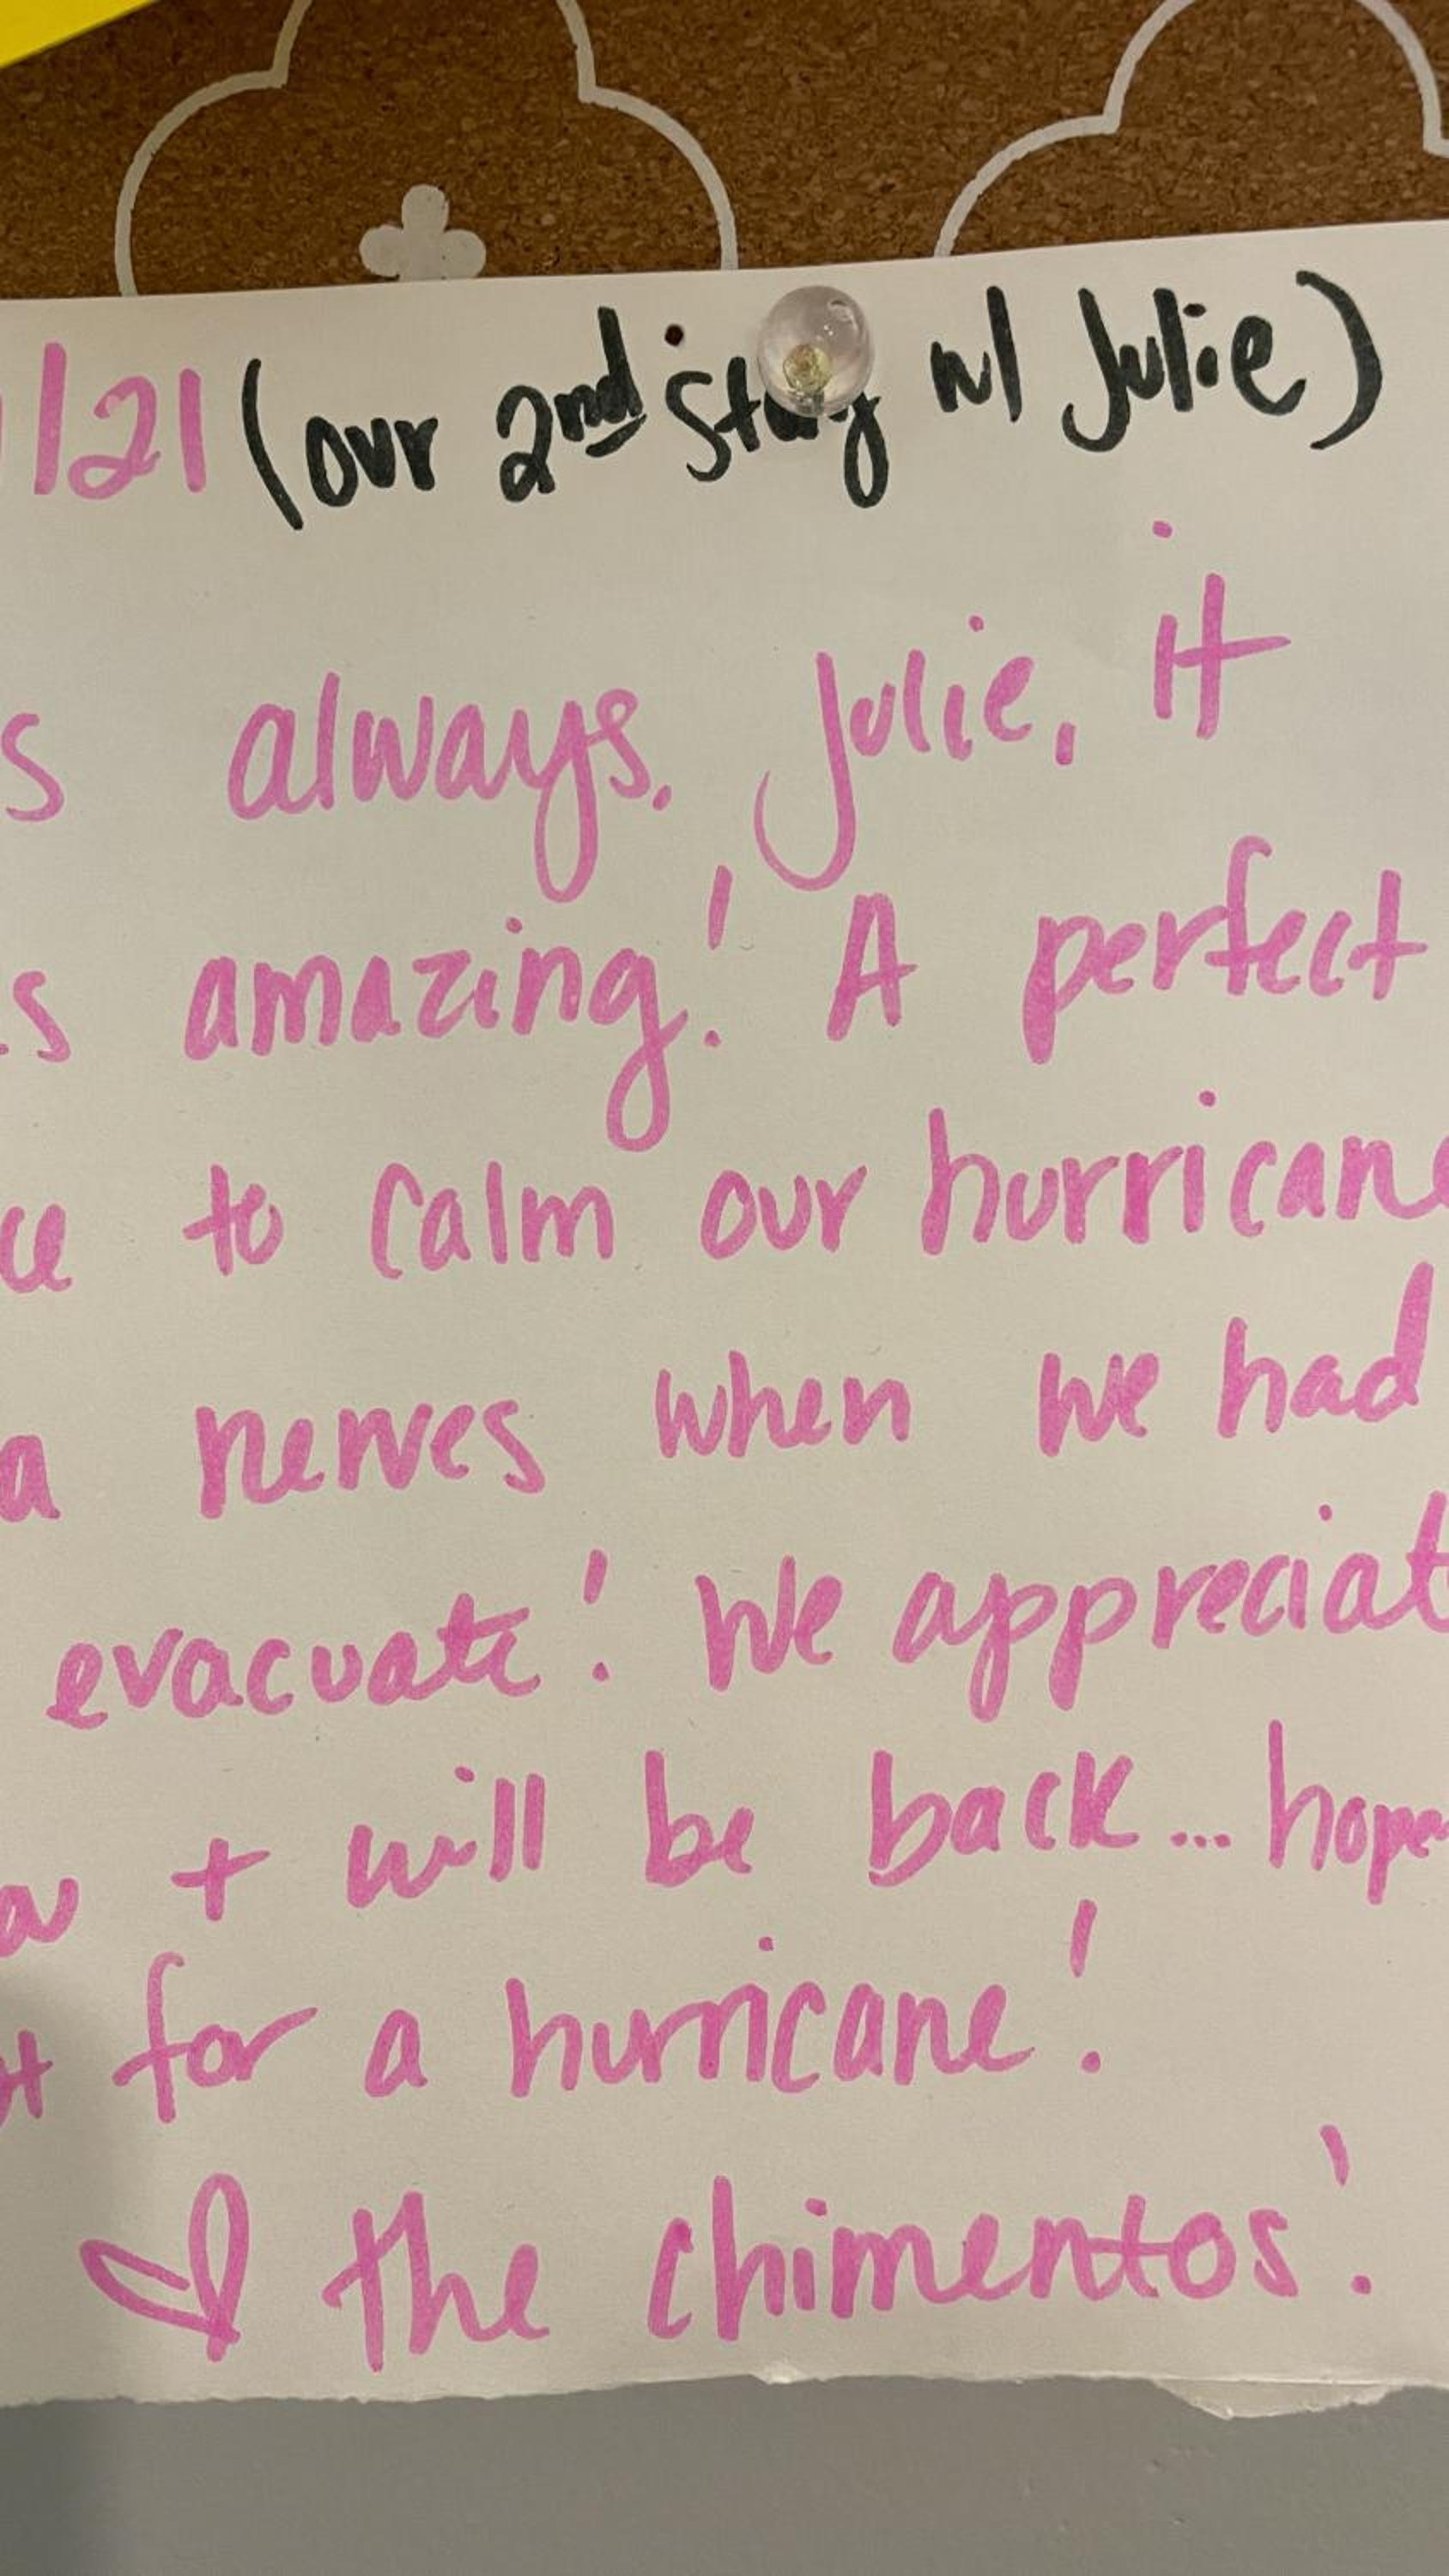 /21 (our 2nd stay w/ Julie)
s always, Julie, it
s amazing! A perfect
ce to calm our hurricane
a nerves when we had
evacuate! We appreciat
+ will be back... hope
for a hurricane!
♡ the chimentos!